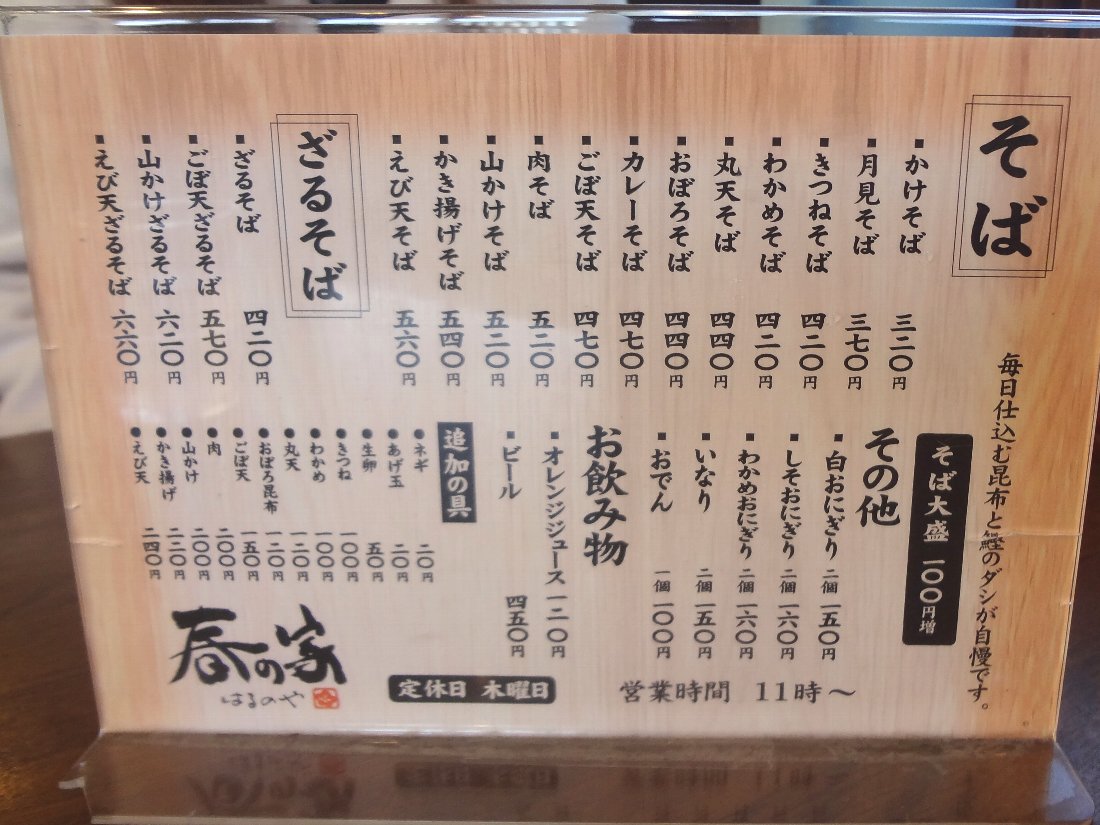 そば
毎日仕込む昆布と鰹のダシが自慢です。
■かけそば 三二〇円
■月見そば 三七〇円
■きつねそば 四二〇円
■わかめそば 四二〇円
■丸天そば 四四〇円
■おぼろそば 四四〇円
■カレーそば 四七〇円
■ごぼ天そば 四七〇円
■肉そば 五二〇円
■山かけそば 五二〇円
■かき揚げそば 五四〇円
■えび天そば 五六〇円
ざるそば
■ざるそば 四二〇円
■ごぼ天ざるそば 五七〇円
■山かけざるそば 六二〇円
■えび天ざるそば 六六〇円
そば大盛 一〇〇円増
その他
■白おにぎり 二個 一五〇円
■しそおにぎり 二個 一六〇円
■わかめおにぎり 二個 一六〇円
■いなり 二個 一五〇円
■おでん 一個 一〇〇円
お飲み物
■オレンジジュース 一二〇円
■ビール 四五〇円
追加の具
●ネギ 二〇円
●あげ玉 二〇円
●生卵 五〇円
●きつね 一〇〇円
●わかめ 一〇〇円
●丸天 一二〇円
●おぼろ昆布 一二〇円
●ごぼ天 一五〇円
●肉 二〇〇円
●山かけ 二〇〇円
●かき揚げ 二二〇円
●えび天 二四〇円
営業時間 11時〜
定休日 木曜日
春の家
はるのや